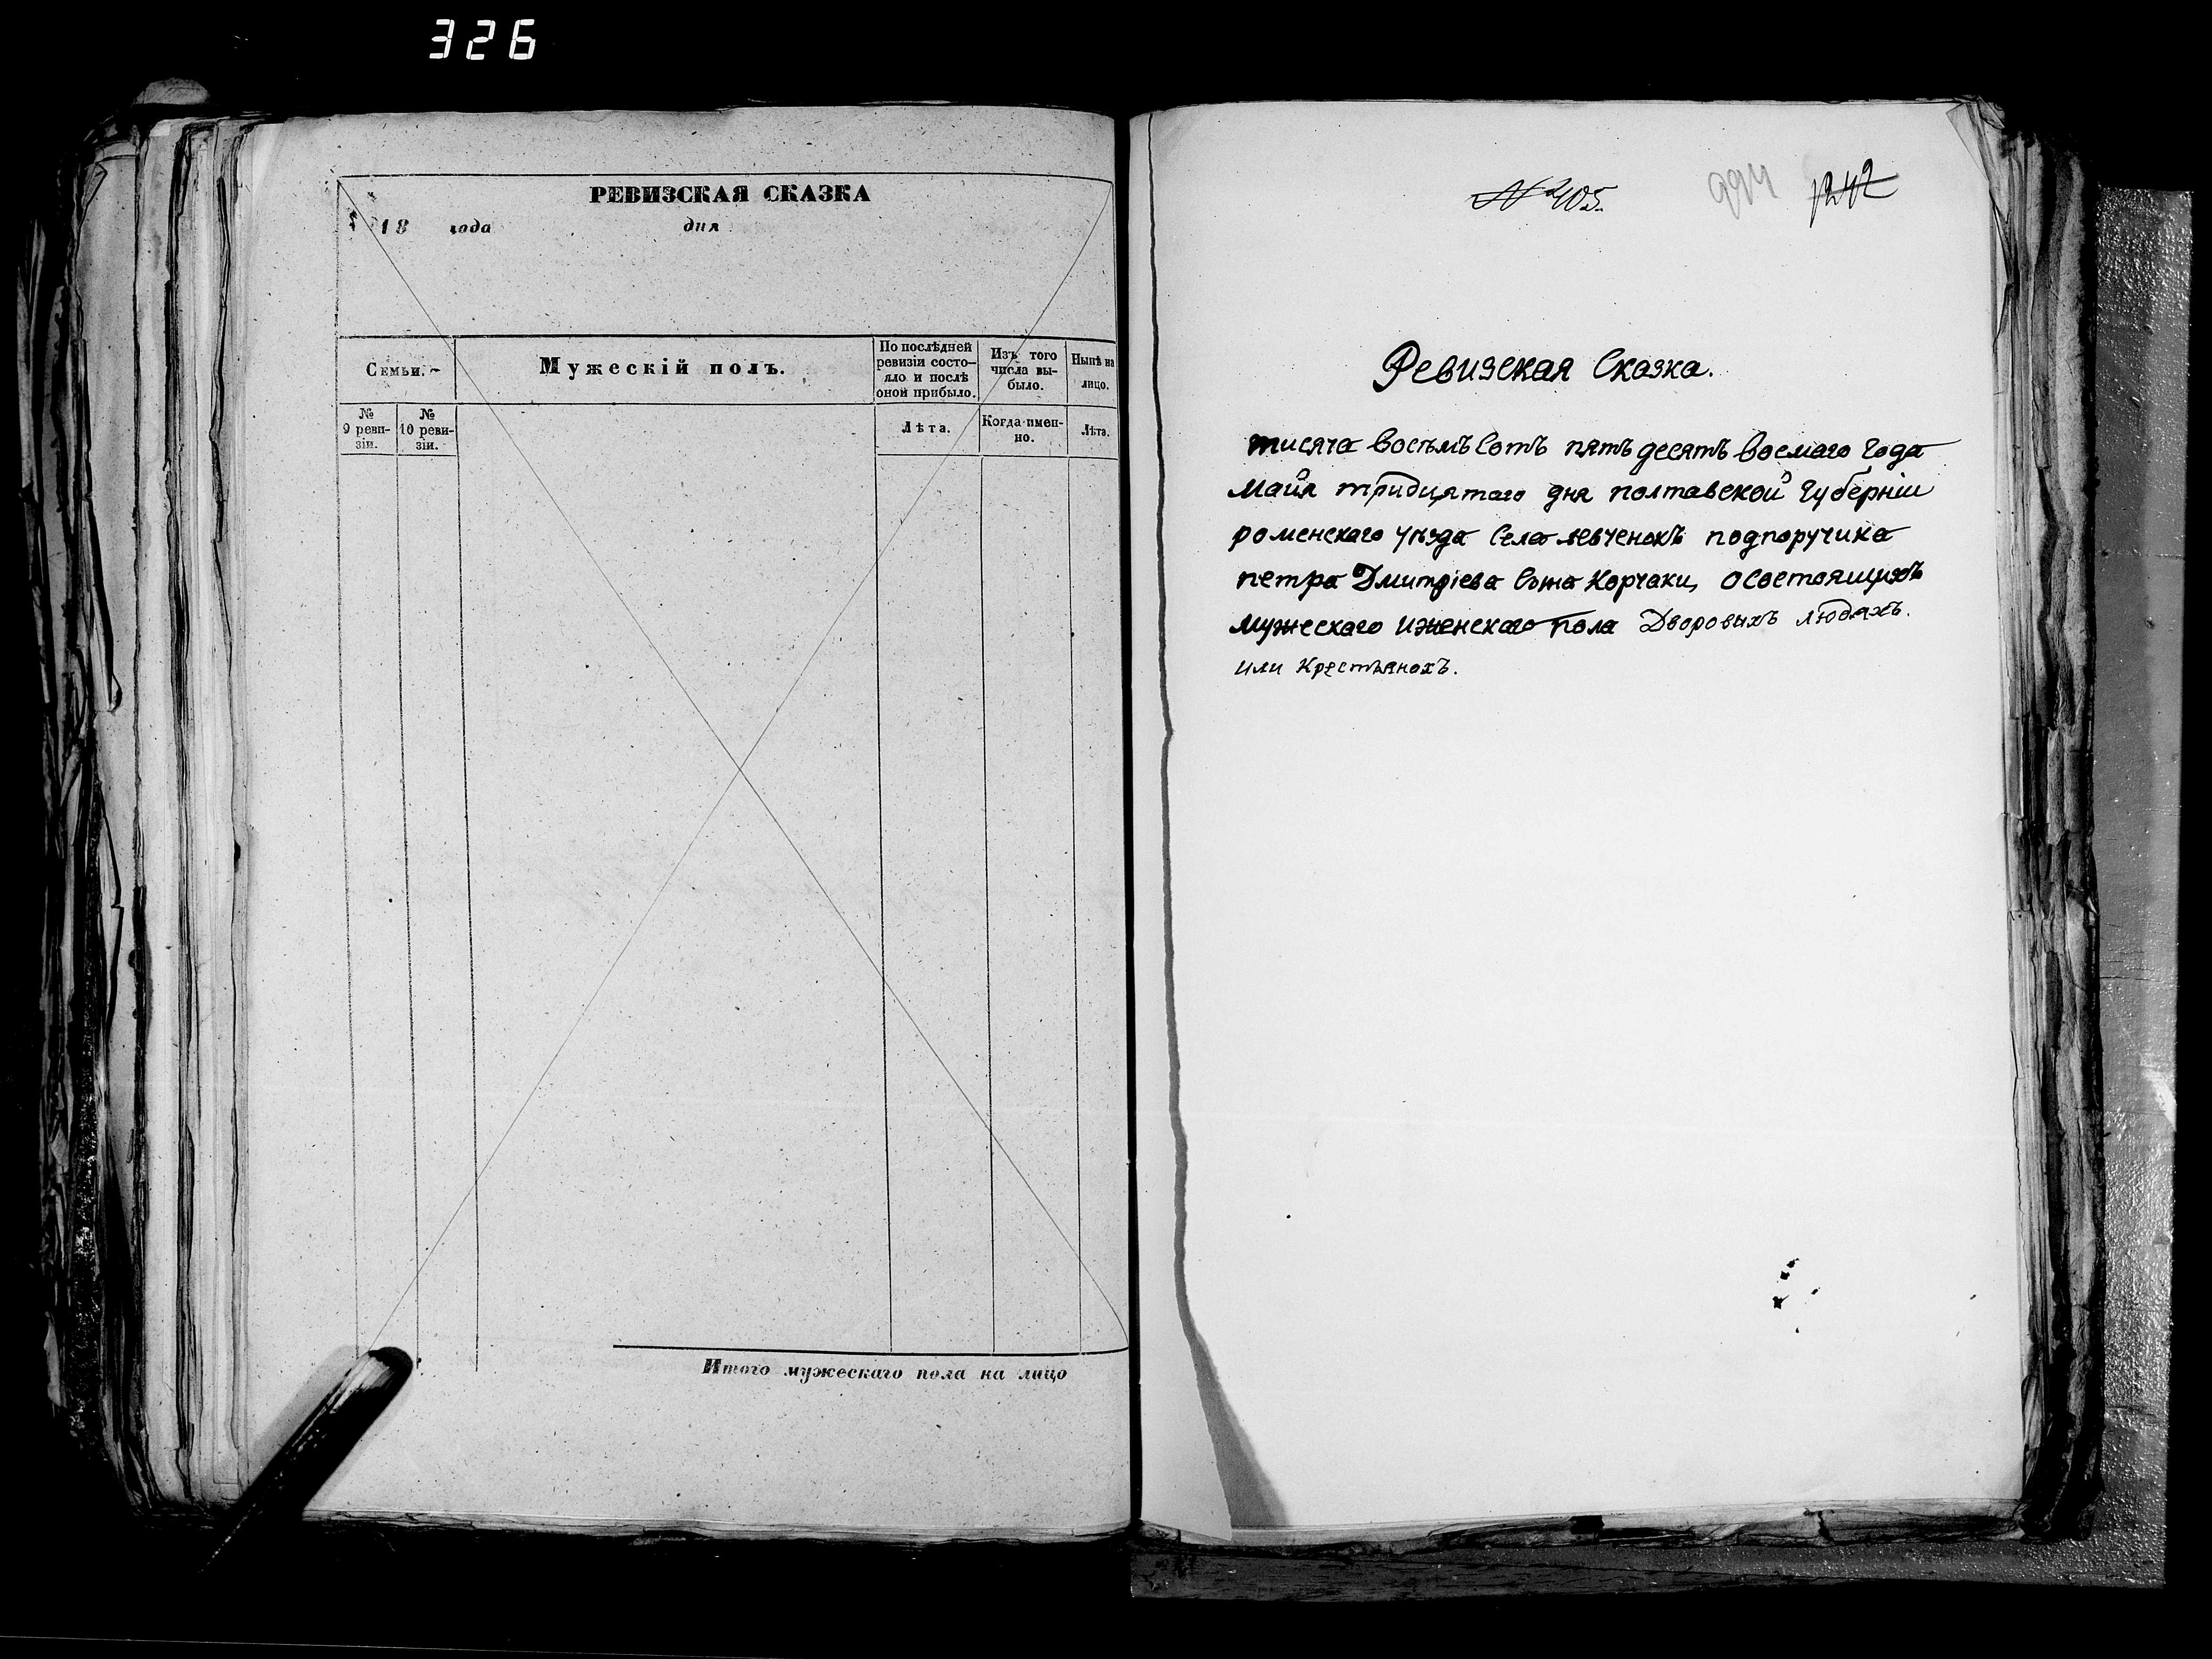 326
РЕВИЗСКАЯ СКАЗКА
18 года дня
Семьи.
Мужескій полъ.
По послѣдней ревизіи состо-
яло и послѣ
оной прибыло.
Изъ того
числа вы-
было.
Нынѣ на
лицо.
№
9 реви-
зіи.
№
10 реви-
зіи.
Лѣта.
Когда имен-
но.
Лѣта.
Итого мужескаго пола на лицо
№ 405.
994
1242
Ревизская Сказка.
тисяча восъмъ сотъ пятъ десятъ воемаго года
Маия тридцятаго дня полтавской Губерніи
роменскаго уѣзда села левченокъ подпоручика
петра Дмитріева сына Корчаки, о состоящихъ
мужескаго и женскаго пола Дворовыхъ людахъ.
или Крестъянахъ.